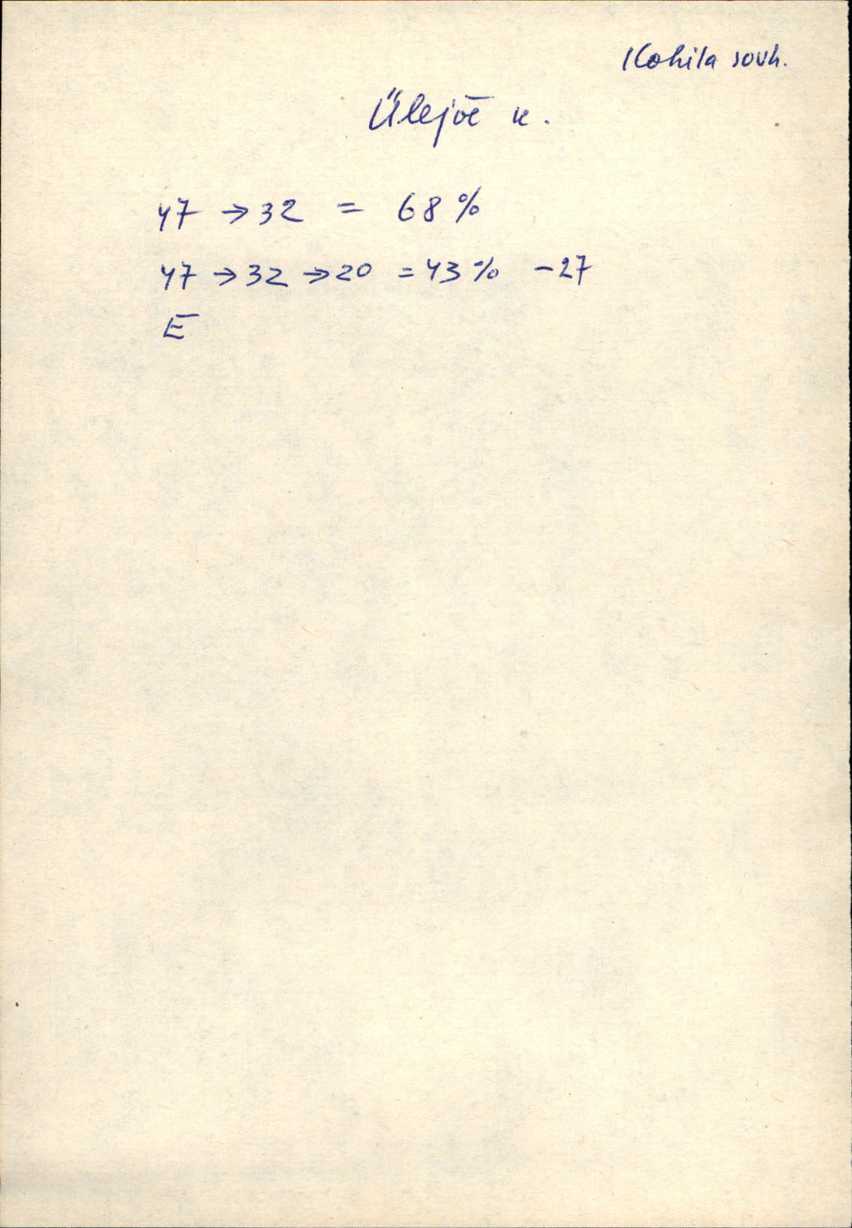 Kohila sovh.
Ülejõe k.
47 → 32 = 68 %
47 → 32 → 20 = 43 % - 27
E